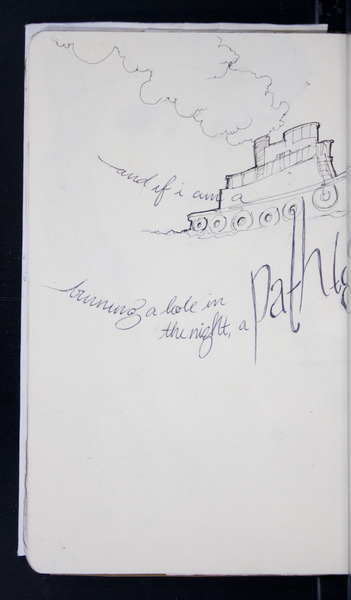 and if i am a
burning a hole in
the night, a path